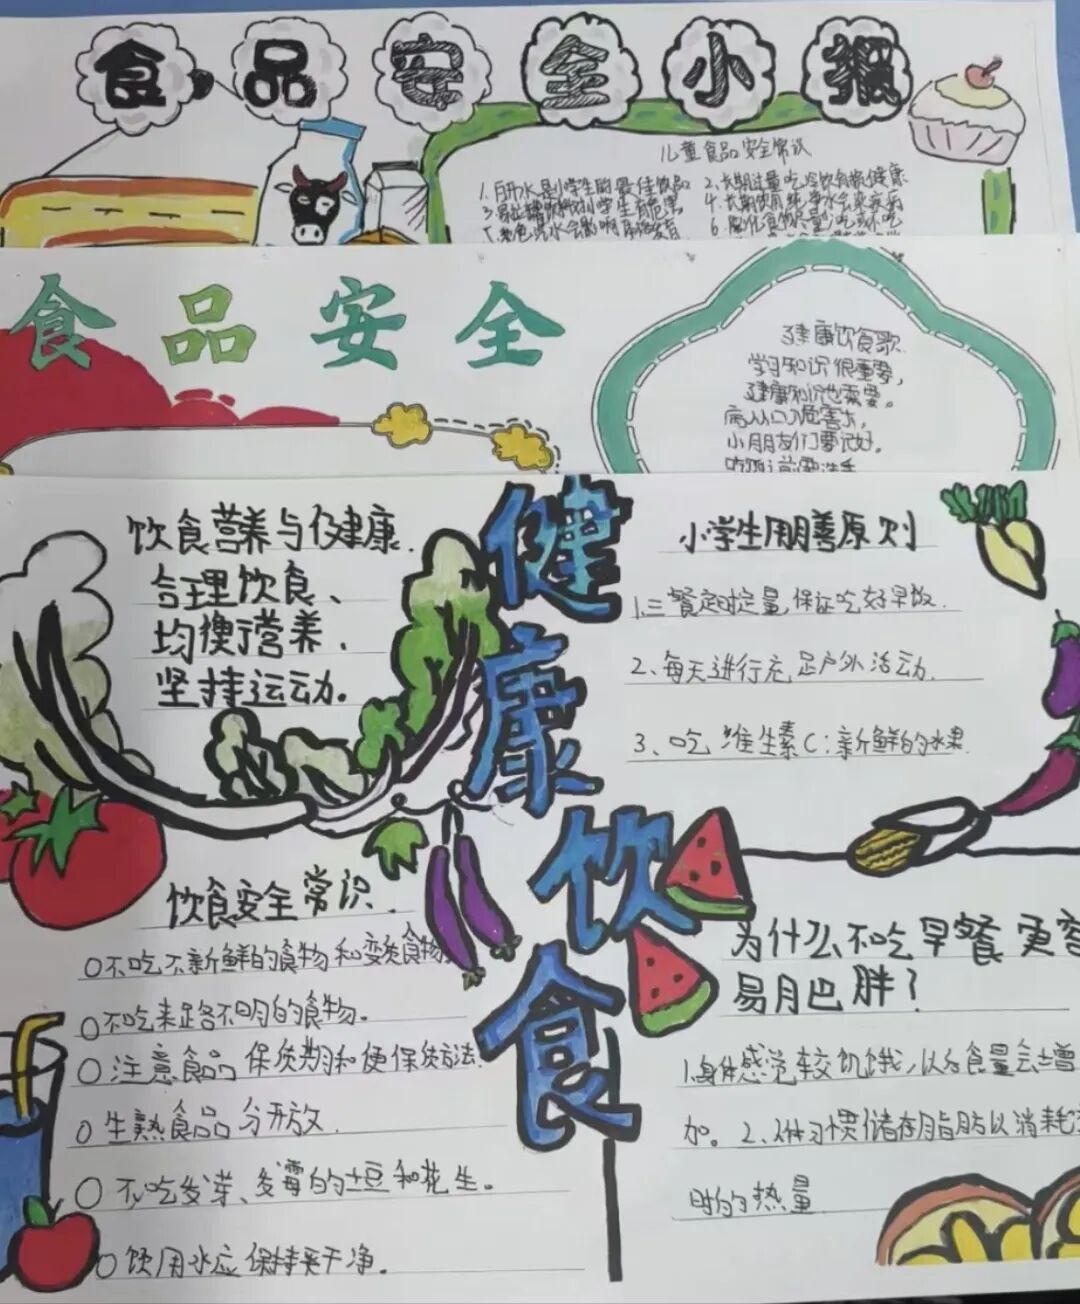 食品安全小报
儿童食品安全常识
1.开水是小学生的最佳饮品 2.长期过量吃冷饮有损健康
学生有危害 4.长期饮用纯净水会
6.膨化食物尽量少吃或不吃
食品安全
健康饮食歌
学习知识很重要，
健康知识也需要。
病从口入危害大，
小朋友们要记好。
健康饮食
饮食营养与健康.
合理饮食、
均衡营养、
坚持运动。
小学生用膳原则
1.三餐定时定量，保证吃好早饭.
2、每天进行充足户外活动.
3、吃维生素C：新鲜的水果.
饮食安全常识.
○不吃不新鲜的食物和变质食物.
○不吃来路不明的食物。
○注意食品保质期和保质方法.
○生熟食品分开放.
○不吃发芽、发霉的土豆和花生。
○饮用水应保持干净。
为什么不吃早餐更容
易月巴胖？
1.身体感觉较饥饿，以后食量会增
加。2、习惯储存脂肪以消耗
时的热量